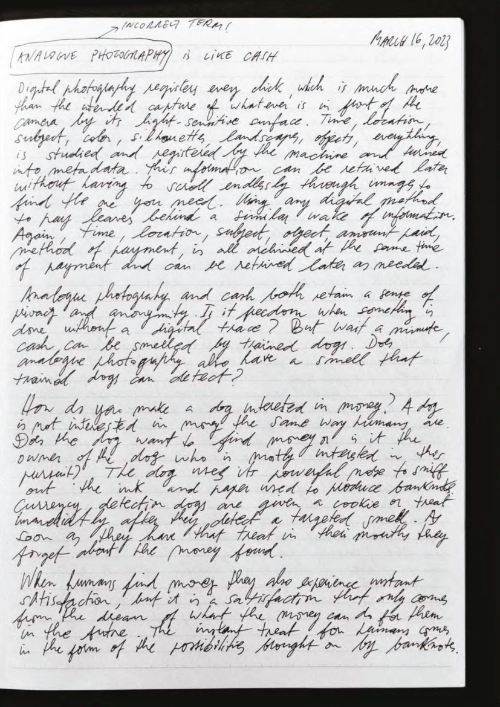 INCORRECT TERM!
MARCH 16, 2023
ANALOGUE PHOTOGRAPHY is LIKE CASH
Digital photography registers every click, which is much more
than the intended capture of whatever is in front of the
camera by its light-sensitive surface. Time, location,
subject, color, silhouettes, landscapes, objects, everything
is studied and registered by the machine and turned
into metadata. This information can be retrieved later
without having to scroll endlessly through images to
find the one you need. Using any digital method
to pay leaves behind a similar wake of information.
Again, time, location, subject, object, amount paid,
method of payment, is all archived at the same time
of payment and can be retrived later as needed.
Analogue photography and cash both retain a sense of
privacy and anonymity. Is it freedom when something is
done without a digital trace? But wait a minute,
cash can be smelled by trained dogs. Does
analogue photography also have a smell that
trained dogs can detect?
How do you make a dog interested in money? A dog
is not interested in money the same way humans are.
Does the dog want to find money or is it the
owner of the dog who is mostly interested in this
pursuit? The dog uses its powerful nose to sniff
out the ink and paper used to produce banknotes.
Currency detection dogs are given a cookie or treat
immediatly after they detect a targeted smell. As
soon as they have that treat in their mouths they
forget about the money found.
When humans find money they also experience instant
satisfaction, but it is a satisfaction that only comes
from the dream of what the money can do for them
in the future. The instant treat for humans comes
in the form of the possibilities brought on by banknotes.